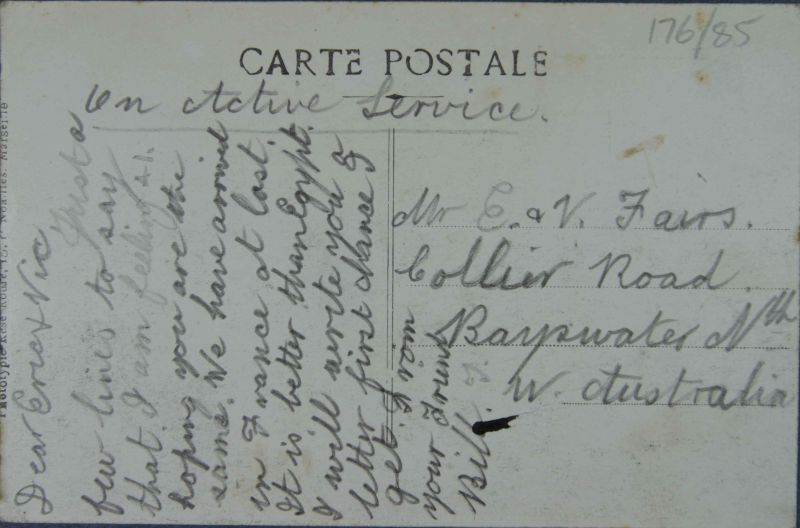 176/85
CARTE POSTALE
On Active Service.
Dear Eric & Vic
Just a
few lines to say
that I am feeling A1.
hoping you are the
same. We have arrived
in France at last.
It is better than Egypt.
I will write you a
letter first chance I
get. From
your Friend
Bill.
Mr E. & V. Fairs.
Collier Road.
Bayswater Nth
W. Australia
Marseille